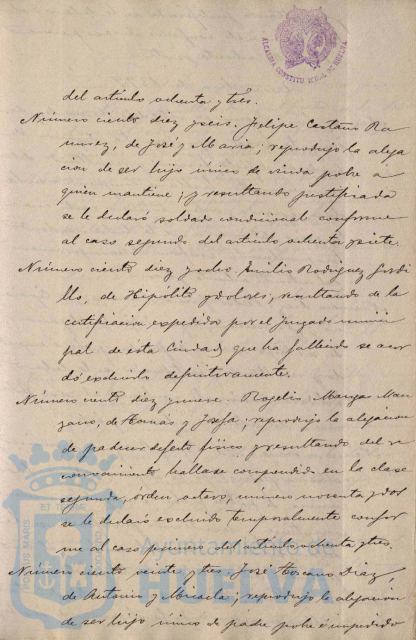 ALCALDIA CONSTITUCIONAL DE HUELVA
del artículo ochenta y tres.
Número ciento diez y seis. Felipe Castaño Ra
mirez, de José y María; reprodujo la alega
cion de ser hijo único de viuda pobre a
quien mantiene; y resultando justificada
se le declaró soldado condicional conforme
al caso segundo del artículo ochenta y siete.
Número ciento diez y ocho. Emilio Rodriguez Gordi
llo, de Hipólito y Dolores, resultando de la
certificacion expedida por el Juzgado muni
pal de esta Ciudad que ha fallecido se acor
dó excluirlo definitivamente.
Número ciento diez y nueve. Rogelio Manzano, de Tomás y Josefa; reprodujo la alegacion
de padecer defecto físico y resultando del re
conocimiento hallarse comprendido en la clase
segunda, órden octavo, número noventa y dos
se le declaró excluido temporalmente confor
me al caso primero del artículo ochenta y tres.
Número ciento veinte y tres. José Díaz,
de Antonio y Micaela; reprodujo la alegacion
de ser hijo único de padre pobre é impedido
Ayuntamiento de
HUELVA